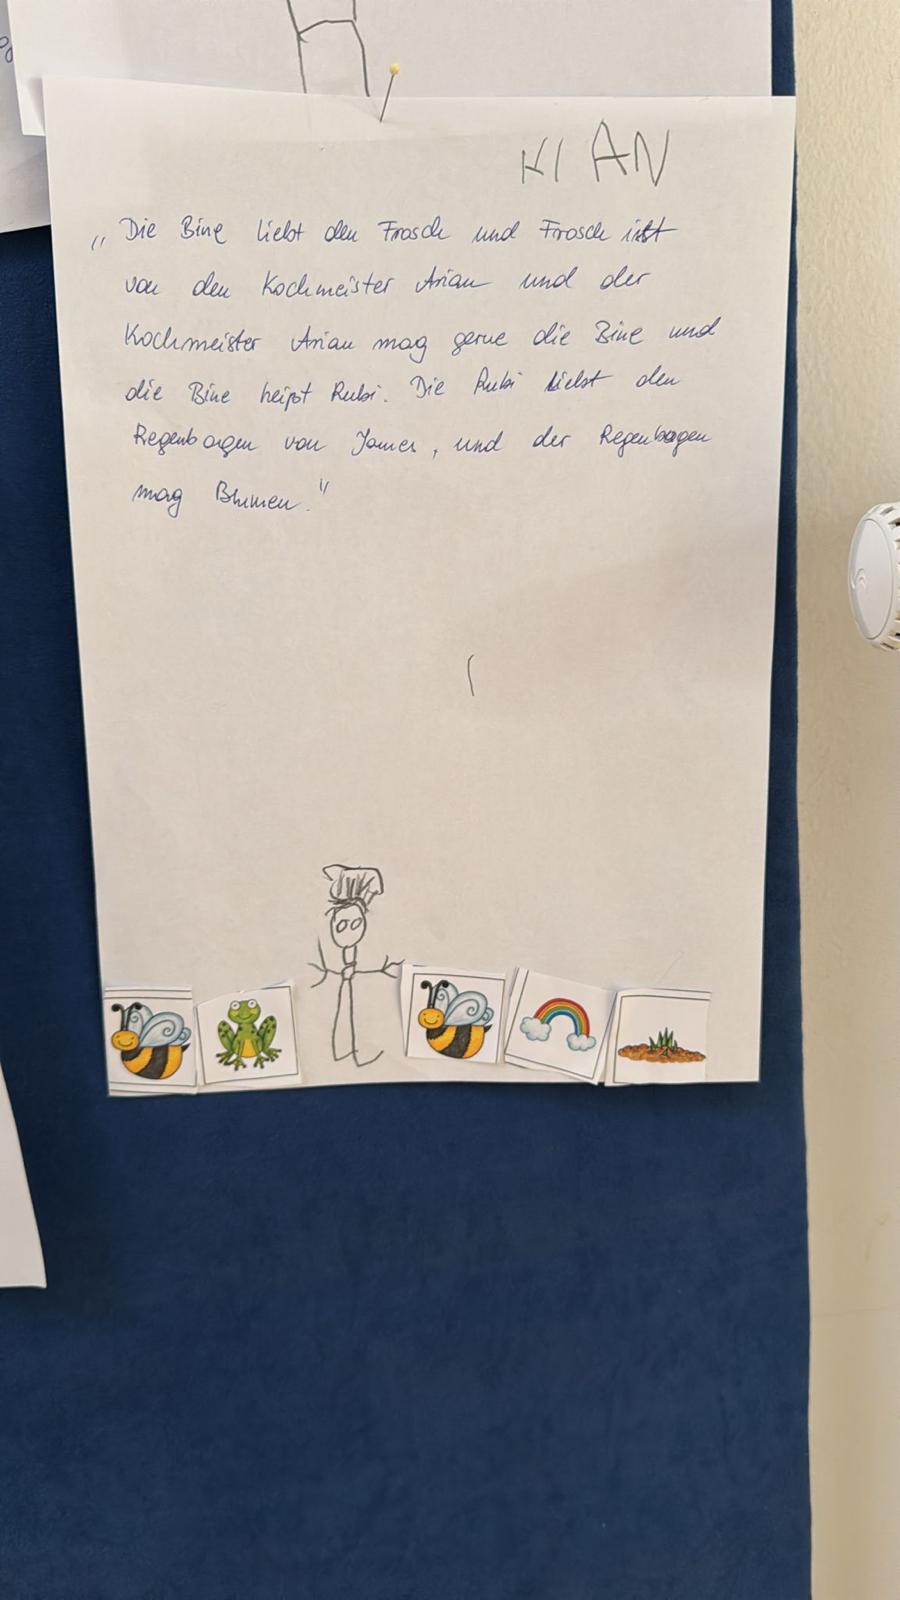 KIAN
„Die Bine liebt den Frosch und Frosch ist
von den Kochmeister Arian und der
Kochmeister Arian mag gerne die Bine und
die Bine heißt Rubi. Die Rubi liebt den
Regenbogen von James, und der Regenbogen
mag Blumen."